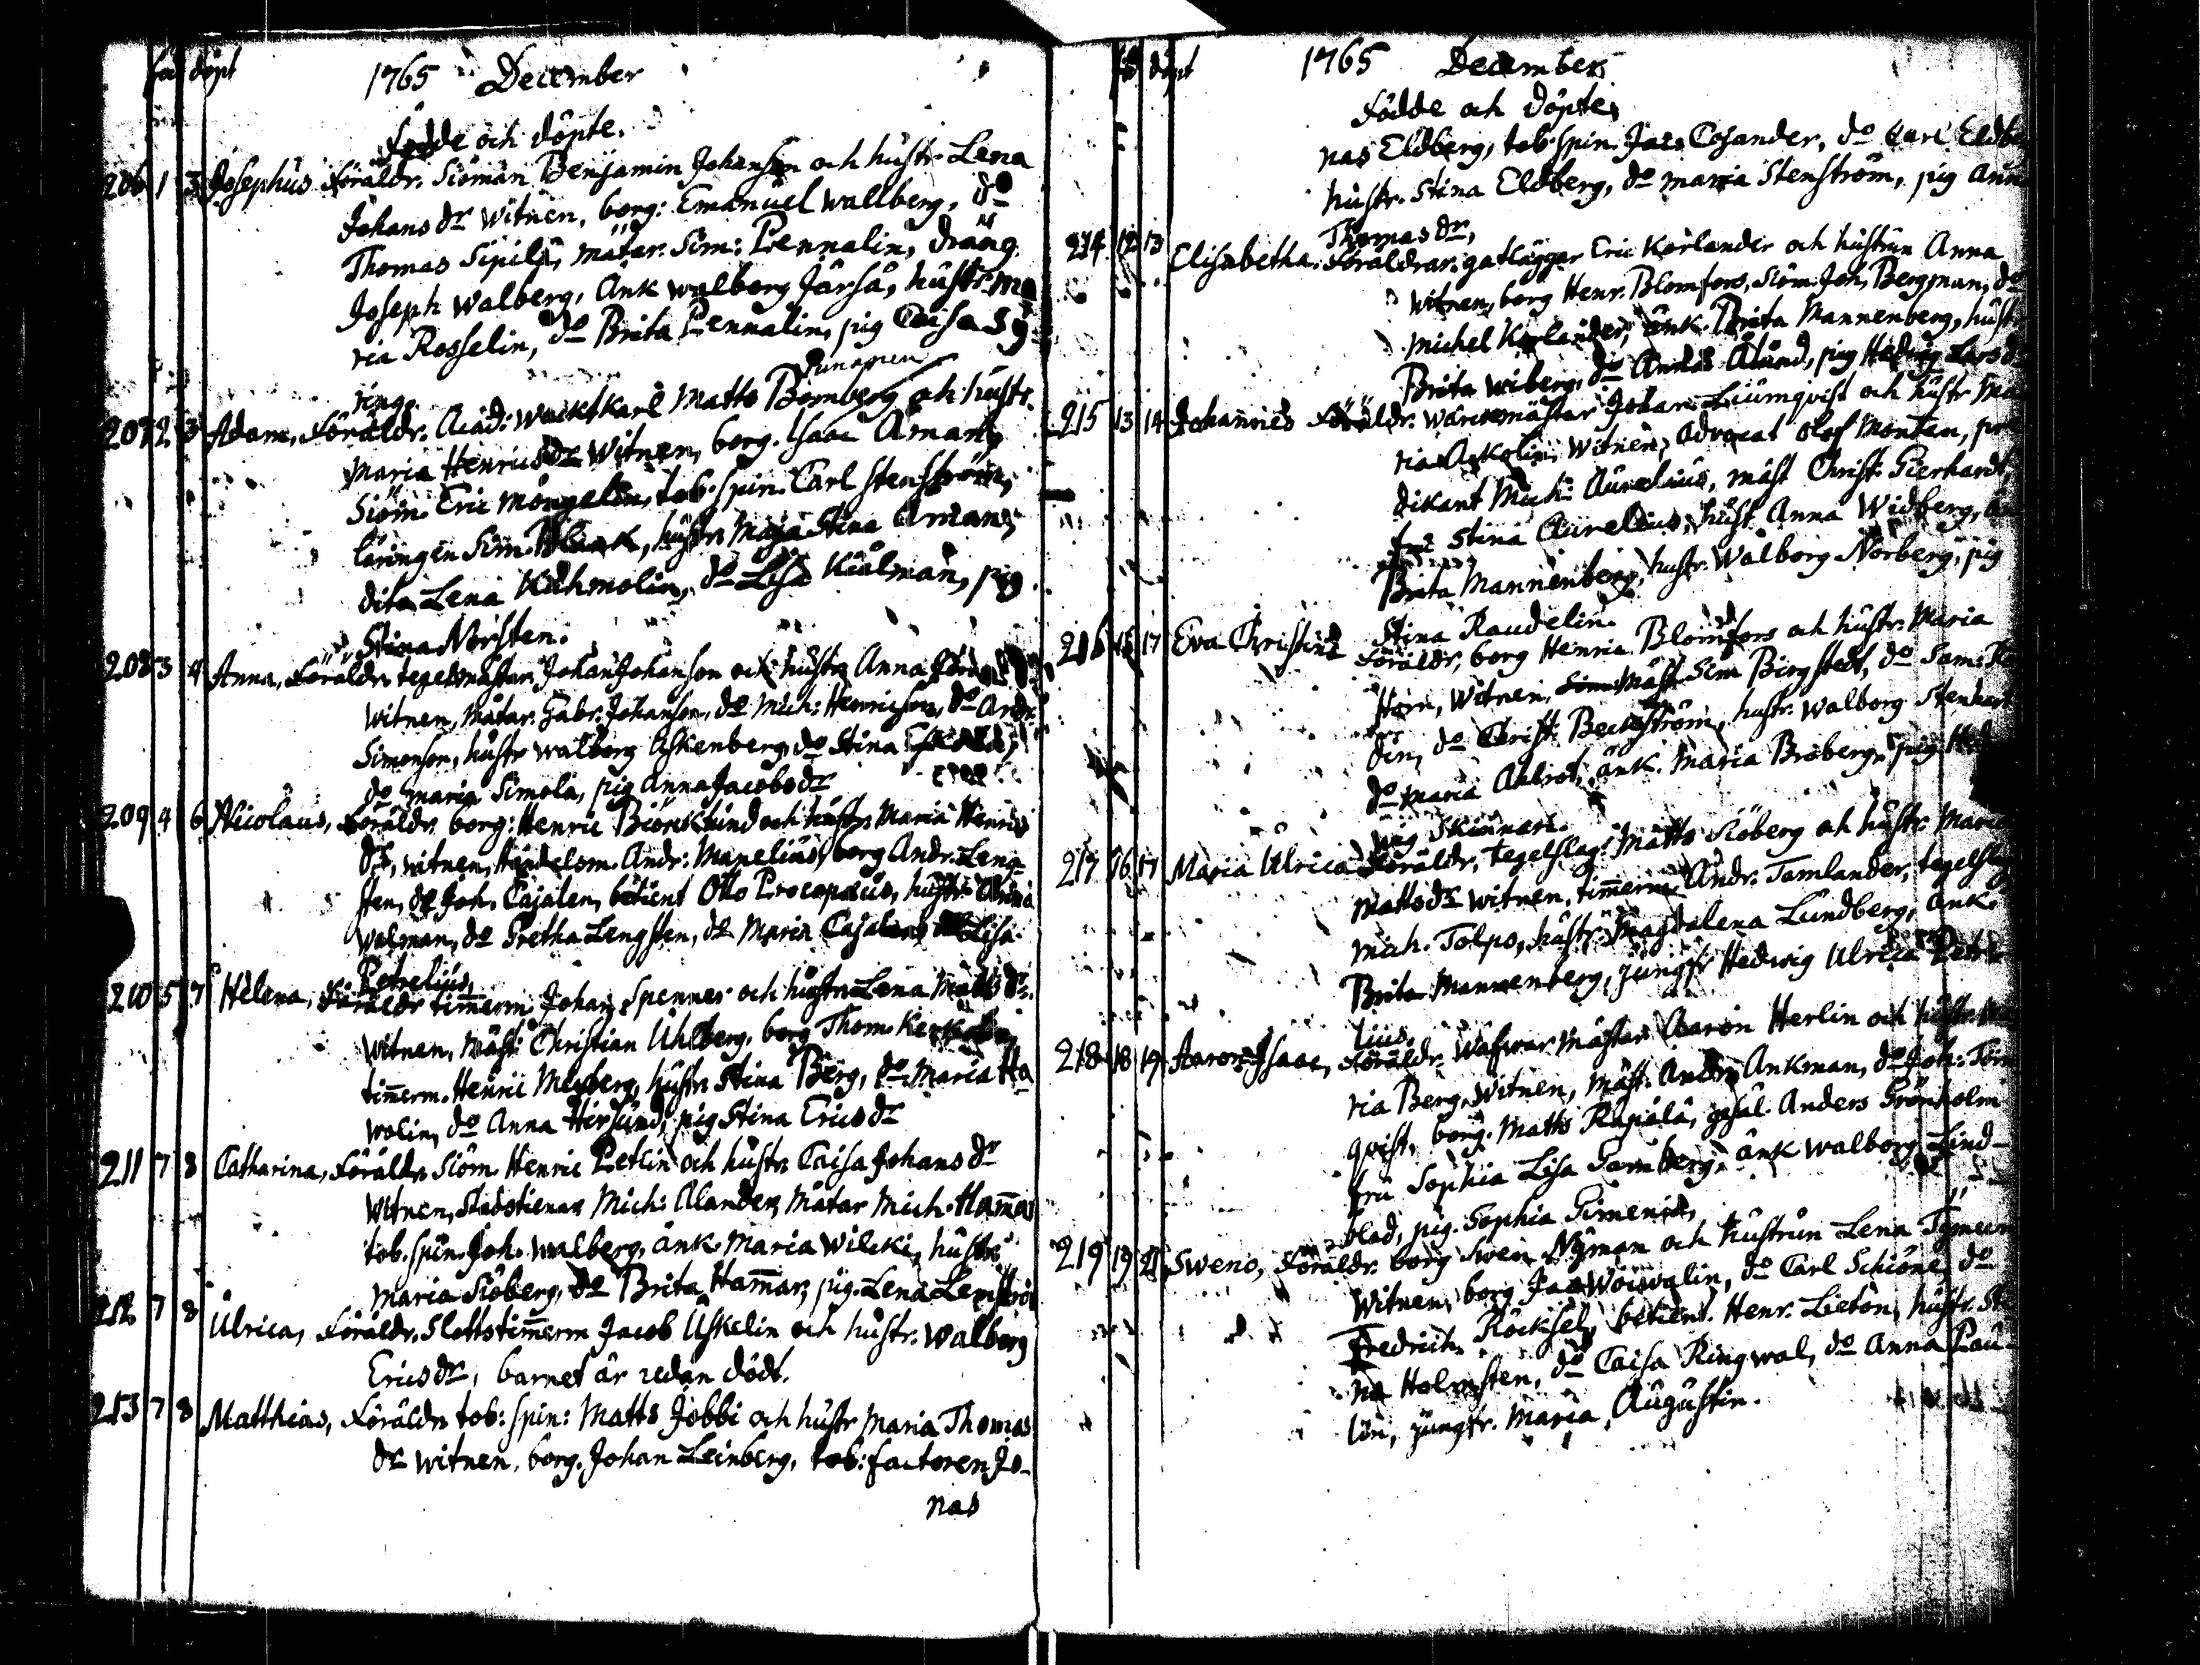 fö döpt
1765 December
Födde och döpte.
206 1 3 Josephus Föräldr. Siöman Benjamin Johanson och hustr. Lena
Johans dr witnen, borg: Emanuel Wallberg, do
Thomas Sipilä, mätar. Sim: Pennalin, dräng
Joseph Walberg, änk walborg Järsä, hustr. Ma
ria Rosselin, do Brita Pennalin, pig Caisa Sy
ring.
Punainen
207 2 3 Adam, Föräldr. Acad: wacktkarl Matts Bomberg och hustr.
Maria Henrics dr witnen, borg. Isaac Aman,
Siöm. Eric Mongelin, tob. spin. Carl Stenström,
läringen Sim. hustr Maja Stina Aman,
dito Lena Kuhmolin, do Lisa Kiälman, pig
Stina Norsten.
208 3 4 Anna, Föräldr tegelmästar Johan Johanson och hustr Anna
witnen, mätar. Gabr. Johanson, do Mich: Henricson, do Andr.
Simonson, hustr walborg Askenberg, do Stina
do Maria Simola, pig Anna Jacobs dr
209 4 6 Nicolaus, Föräldr borg: Henric Biörklund och hustr Maria Henrics
dr, witnen, Handelsm. Andr: Manelius, borg Andr. Leng
sten, do Joh. Cajalen, betient Otto Procopæus, hustr Anna
Walman, do Gretha Lengsten, do Maria Cajalen Lisa
Petrelius,
210 5 7 Helena, Föräldr timmerm Johan Spenner och hustr Lena Matts dr.
witnen, mäst: Christian Uhlberg, borg Thom.
timmerm. Henric Meyberg, hustr Stina Berg, do Maria Ha
wolin, do Anna Hirsund, pig Stina Erics dr
211 7 8 Catharina, Föräldr Siöm Henric Petlin och hustr Caisa Johans dr
witnen, Stadstienar Mich: Alander, mätar Mich. Hammar
tob. spin. Joh. Walberg, änk Maria Wilcki, hustr
Maria Siöberg, do Brita Hammar, pig. Lena Lemström
212 7 8 Ulrica, Föräldr. Slottstimmerm Jacob Uskelin och hustr. Walborg
Erics dr, barnet är redan dödt.
213 7 8 Matthias, Föräldr tob: spin: Matts Jobbi och hustr Maria Thomas
dr witnen, borg. Johan Leinberg, tob: factoren Jo-
nas
fö döpt
1765 December
Födde och döpte,
nas Eldberg, tob. spin. Jac. Cosander, do Carl Eldbe
hustr. Stina Eldberg, do Maria Stenström, pig Ann
Thomas dr,
214 12 13 Elisabetha. Föräldrar. gatläggar Eric Korlander och hustrun Anna
witnen, borg Henr. Blomfors, Siöm. Joh. Bergman, do
Michel Korlander, änk. Brita Mannenberg, hustr.
Brita Wiberg, do Anna Ålund, pig Hedwig Lars dr
215 13 14 Johannes Föräldr. Johan Liumqvist och hustr Ma
ria Askolin, witnen, Advocat Olof Montan, pre
dikant Mich: Aurelius, mäst Christ. Gierhardt,
fru Stina Aurelius, hust Anna Widberg,
Brita Mannenberg, hustr. Walborg Norberg, pig
Stina Raudelin.
216 15 17 Eva Christina Föräldr, borg Henric Blomfors och hustr. Maria
Horn, witnen, mäst Sim Bergstedt, do Sam:
din, do Christ. Beckström, hustr. Walborg
do Maria Ahlroth, änk. Maria Broberg, pig Hed
wig Skinnari.
217 16 17 Maria Ulrica Föräldr, tegelslag: Matts Siöberg och hustr. Maria
Matts dr witnen, timmerm Andr. Tamlander, tegelslag
Mich. Tolpo, hustr: Magdalena Lundberg, änk.
Brita Mannenberg, jungfr Hedwig Ulrica Petre
lius.
218 18 19 Aaron Isaac, Föräldr. Wäfwar Mästar Aaron Herlin och hustr. Ma
ria Berg. witnen, mäst. Andr Ankman, do Joh: Törn
qvist, borg. Matts Rapiala, gesäl. Anders Grönholm
fru Sophia Lisa Sarnberg, änk walborg Lind-
blad, pig. Sophia Simenia,
219 19 21 Sweno, Föräldr. borg Swen Nyman och hustrun Lena
witnen, borg Jac Woiwalin, do Carl Schiöne, do
Fredrich Röcksel, betient. Henr. Lieton, hustr. Sti
na Holmsten, do Caisa Ringwal, do Anna Pau-
lin, jungfr. Maria Augustin.